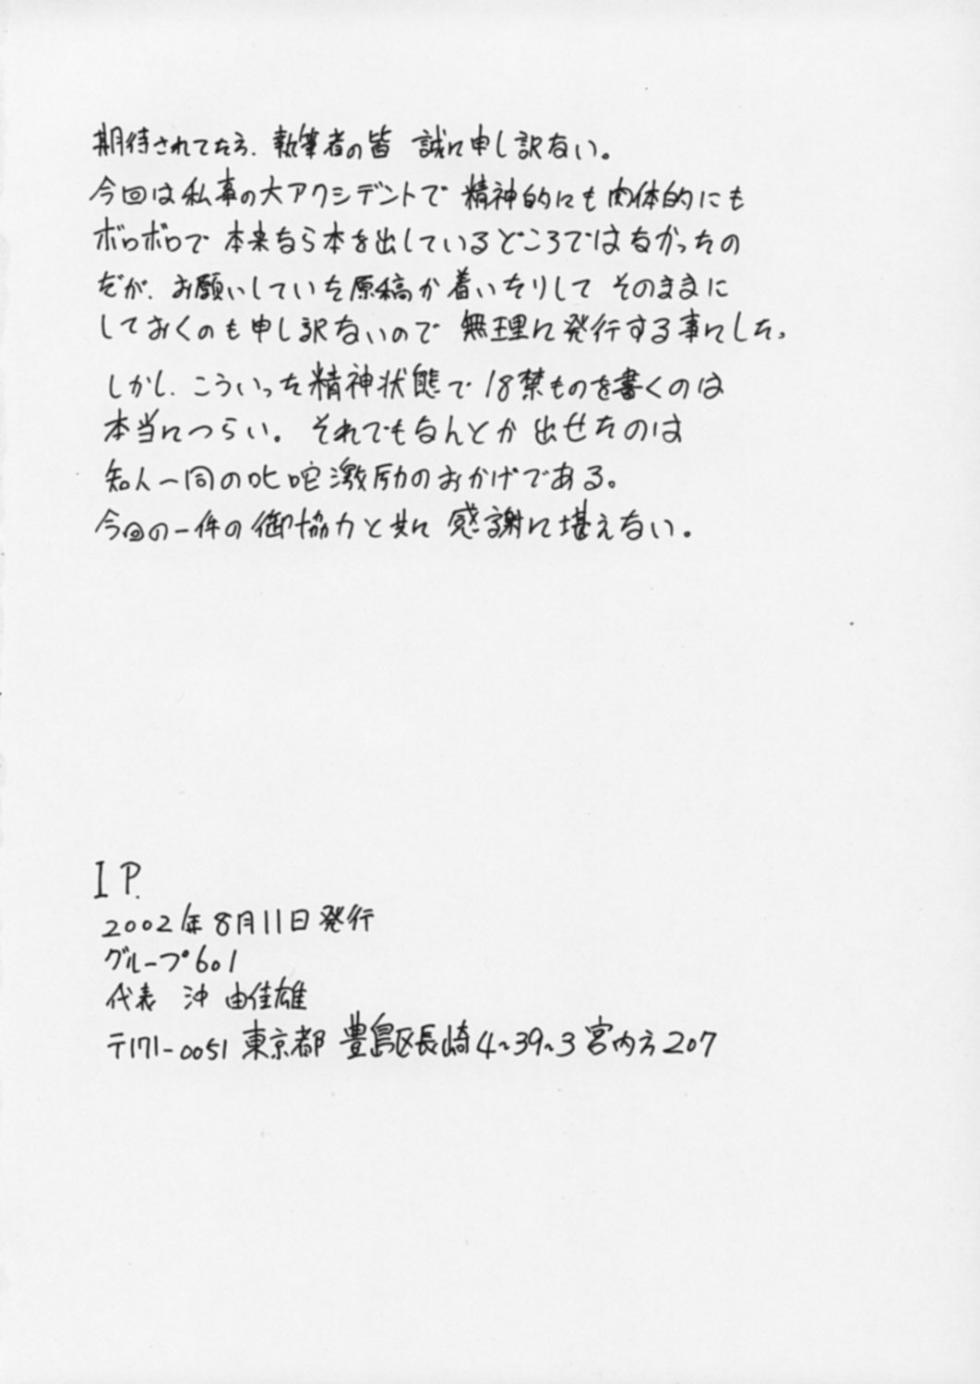 期待されてた方、執筆者の皆 誠に申し訳ない。
今回は私事の大アクシデントで 精神的にも肉体的にも
ボロボロで 本来なら本を出しているどころではなかったの
だが、お願いしていた原稿が着いたりして そのままに
しておくのも申し訳ないので 無理に発行する事にした。
しかし、こういった精神状態で 18禁ものを書くのは
本当につらい。それでもなんとか出せたのは
知人一同の叱咤激励のおかげである。
今回の一件の御協力と共に 感謝に堪えない。
IP.
2002年8月11日発行
グループ601
代表 沖 由佳雄
〒171-0051 東京都 豊島区長崎4~39~3 宮内方207